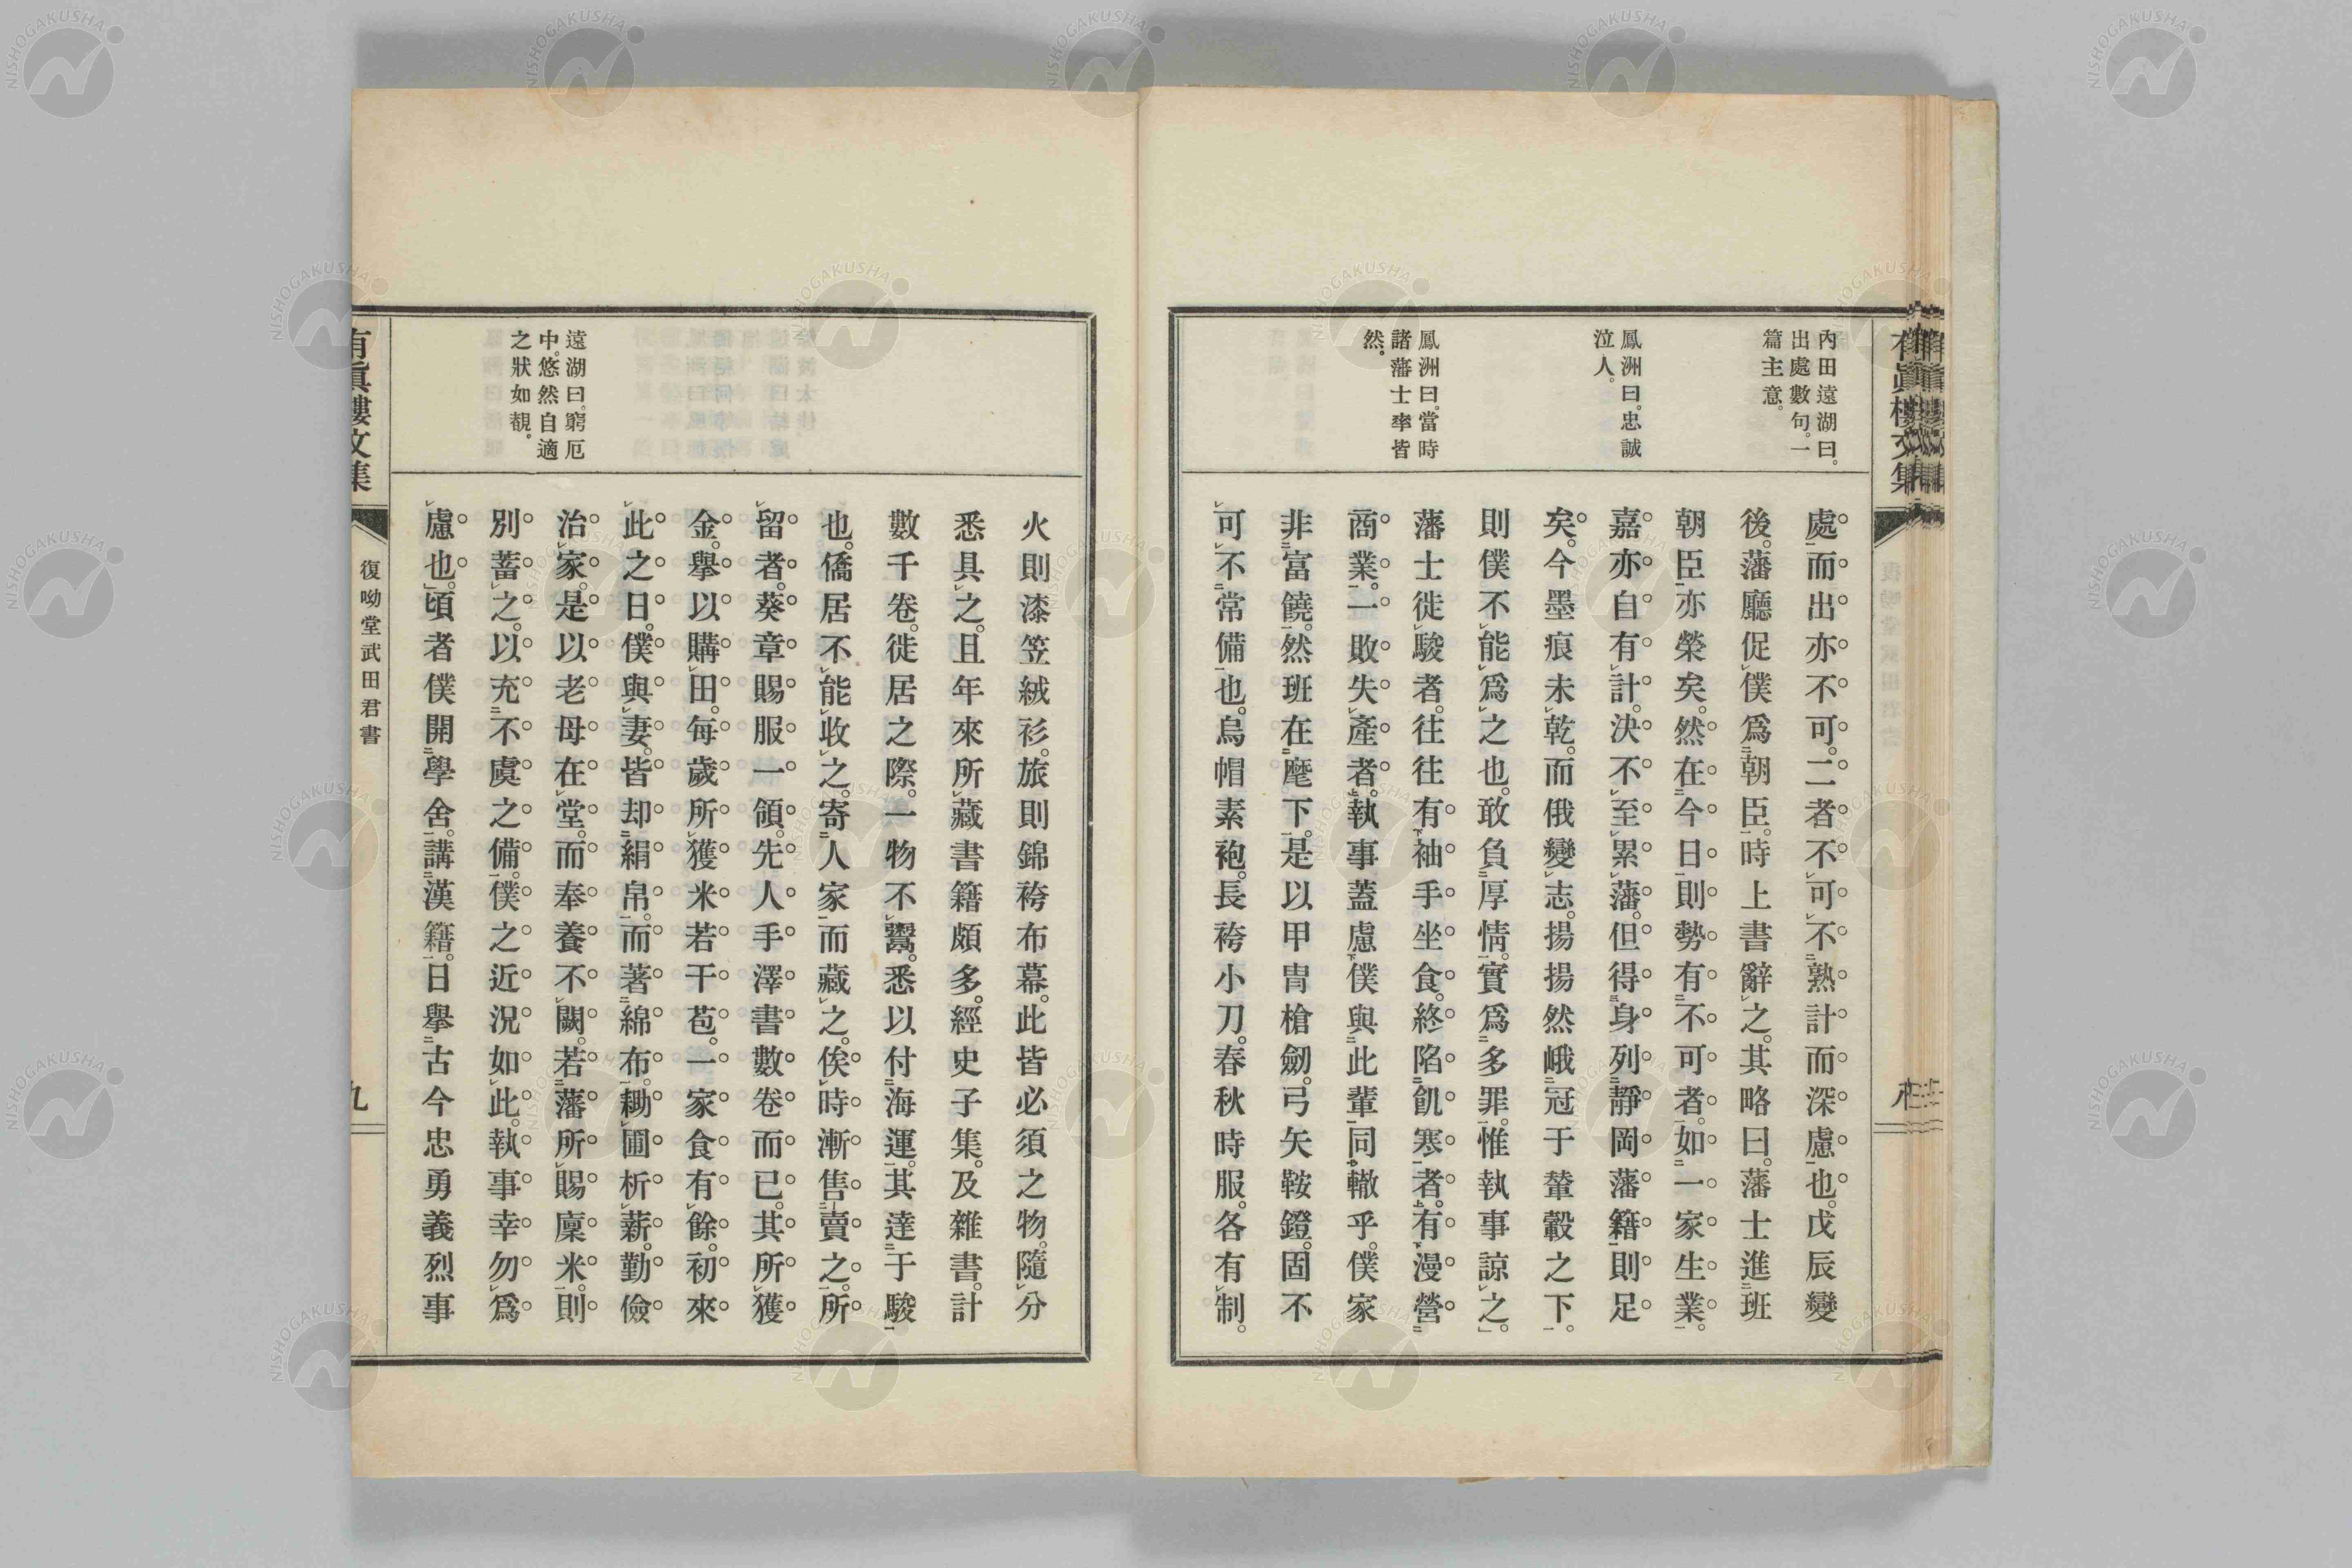 有眞樓文集
內田遠湖曰。
出處數句。一
篇主意。
鳳洲曰。忠誠
泣人。
鳳洲曰。當時
諸藩士率皆
然。
處。而出亦不可。二者不可不熟計而深慮也。戊辰變
後。藩廳促僕爲朝臣。時上書辭之。其略曰。藩士進班
朝臣亦榮矣。然在今日則勢有不可者。如一家生業。
嘉亦自有計。決不至累藩。但得身列靜岡藩籍則足
矣。今墨痕未乾。而俄變志。揚揚然峨冠于輦轂之下。
則僕不能爲之也。敢負厚情。實爲多罪。惟執事諒之」。
藩士徙駿者。往往有袖手坐食。終陷飢寒者。有漫營
商業。一敗失產者。執事蓋慮僕與此輩同轍乎。僕家
非富饒。然班在麾下。是以甲冑槍劒。弓矢鞍鐙。固不
可不常備也。烏帽素袍。長袴小刀。春秋時服。各有制。
火則漆笠絨衫。旅則錦袴布幕。此皆必須之物。隨分
悉具之。且年來所藏書籍頗多。經史子集。及雜書。計
數千卷。徙居之際。一物不鬻。悉以付海運。其達于駿
也。僑居不能收之。寄人家而藏之。俟時漸售賣之。所
留者。葵章賜服一領。先人手澤書數卷而已。其所獲
金。擧以購田。每歲所獲米若干苞。一家食有餘。初來
此之日。僕與妻。皆却絹帛。而著綿布。耡圃析薪。勤儉
治家。是以老母在堂。而奉養不闕。若藩所賜廩米。則
別蓄之。以充不虞之備。僕之近況如此。執事幸勿爲
慮也」。頃者僕開學舍。講漢籍。日擧古今忠勇義烈事
遠湖曰。窮厄
中。悠然自適
之狀如覩。
有眞樓文集
復呦堂武田君書
九